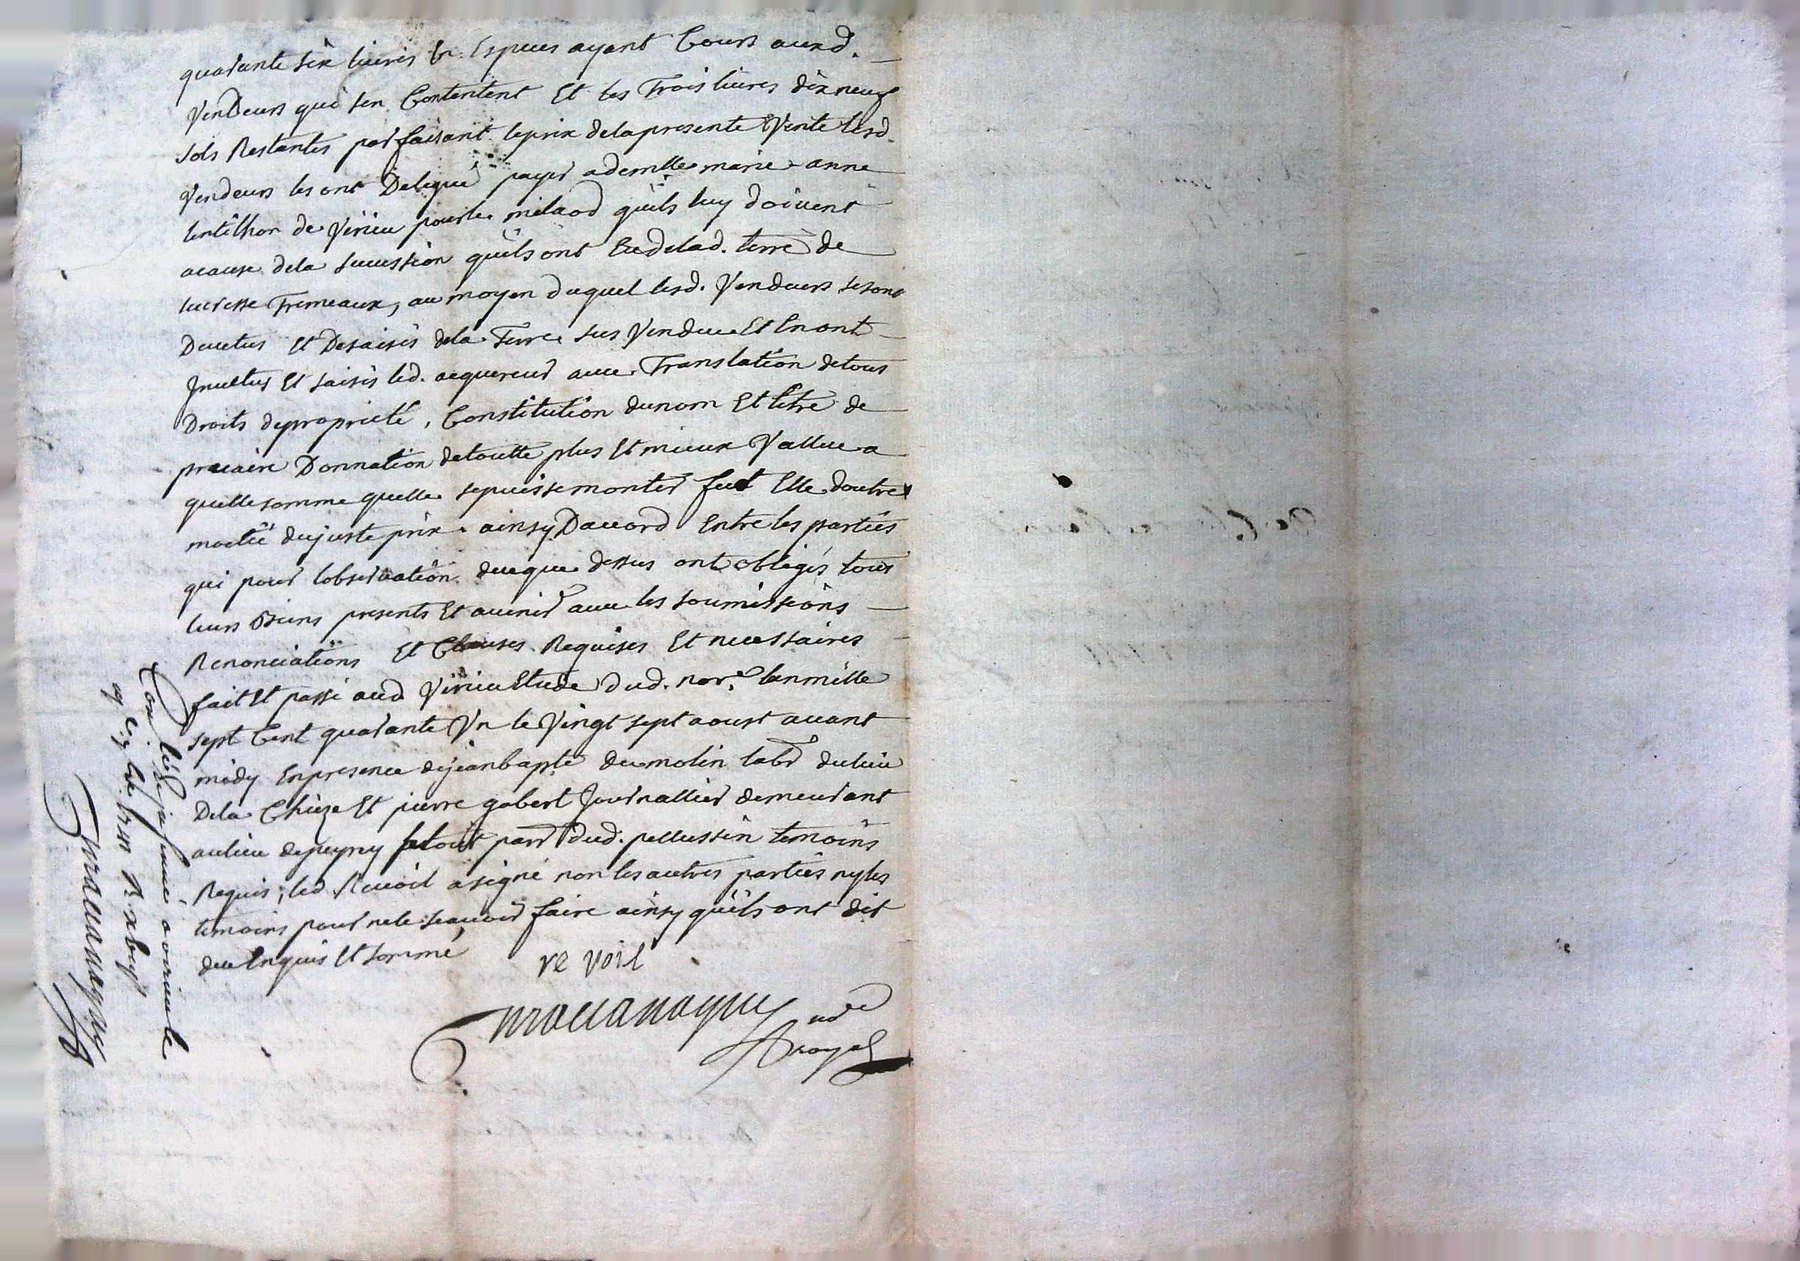 quarante six livres en Espèces ayant Cours auxd.
Vendeurs qui sen Contentent Et les Trois livres dix neuf
sols Restantes parfaisant leprix delapresente Vente lesd.
Vendeurs les ont Delegué payer a demlle marie anne
de Virieu pour le quils luy doivent
acause dela succession quils ont Eu delad. terre de
lucresse Fremeaux, au moyen duquel lesd. Vendeurs sesont
Devetus et Desaisis dela Terre sus Vendue Et En ont
Jnvetus Et saisis led. acquereur avec Translation detous
Droits depropriete, Constitution dunom Et titre de
precaire Donnation detoutte plus Et mieux Vallue a
quelle somme quelle sepuisse monter fut Elle doutre
moetié dujuste prix. ainsy Daccord Entre les parties
qui pour lobservation deceque dessus ont obligés tous
leurs Biens presents Et avenir avec les soumissions
Renonciations Et Clauses Requises Et necessaires
fait Et passé aud Virieu Etude dud. nore. lan mille
sept Cent quarante Vn le Vingt sept aoust avant
midy Enpresence dejean bapte dumolin labr dulieu
Dela Chieze Et pierre gabert Journallier demeurant
aulieu depeyny le tout parr dud. pellussin temoins
Requis; led Revoil a signé non les autres parties ny les
temoins pour nele scavoir faire ainsy quils ont dit
de ce Enquis Et sommé
re voil
nore
royal